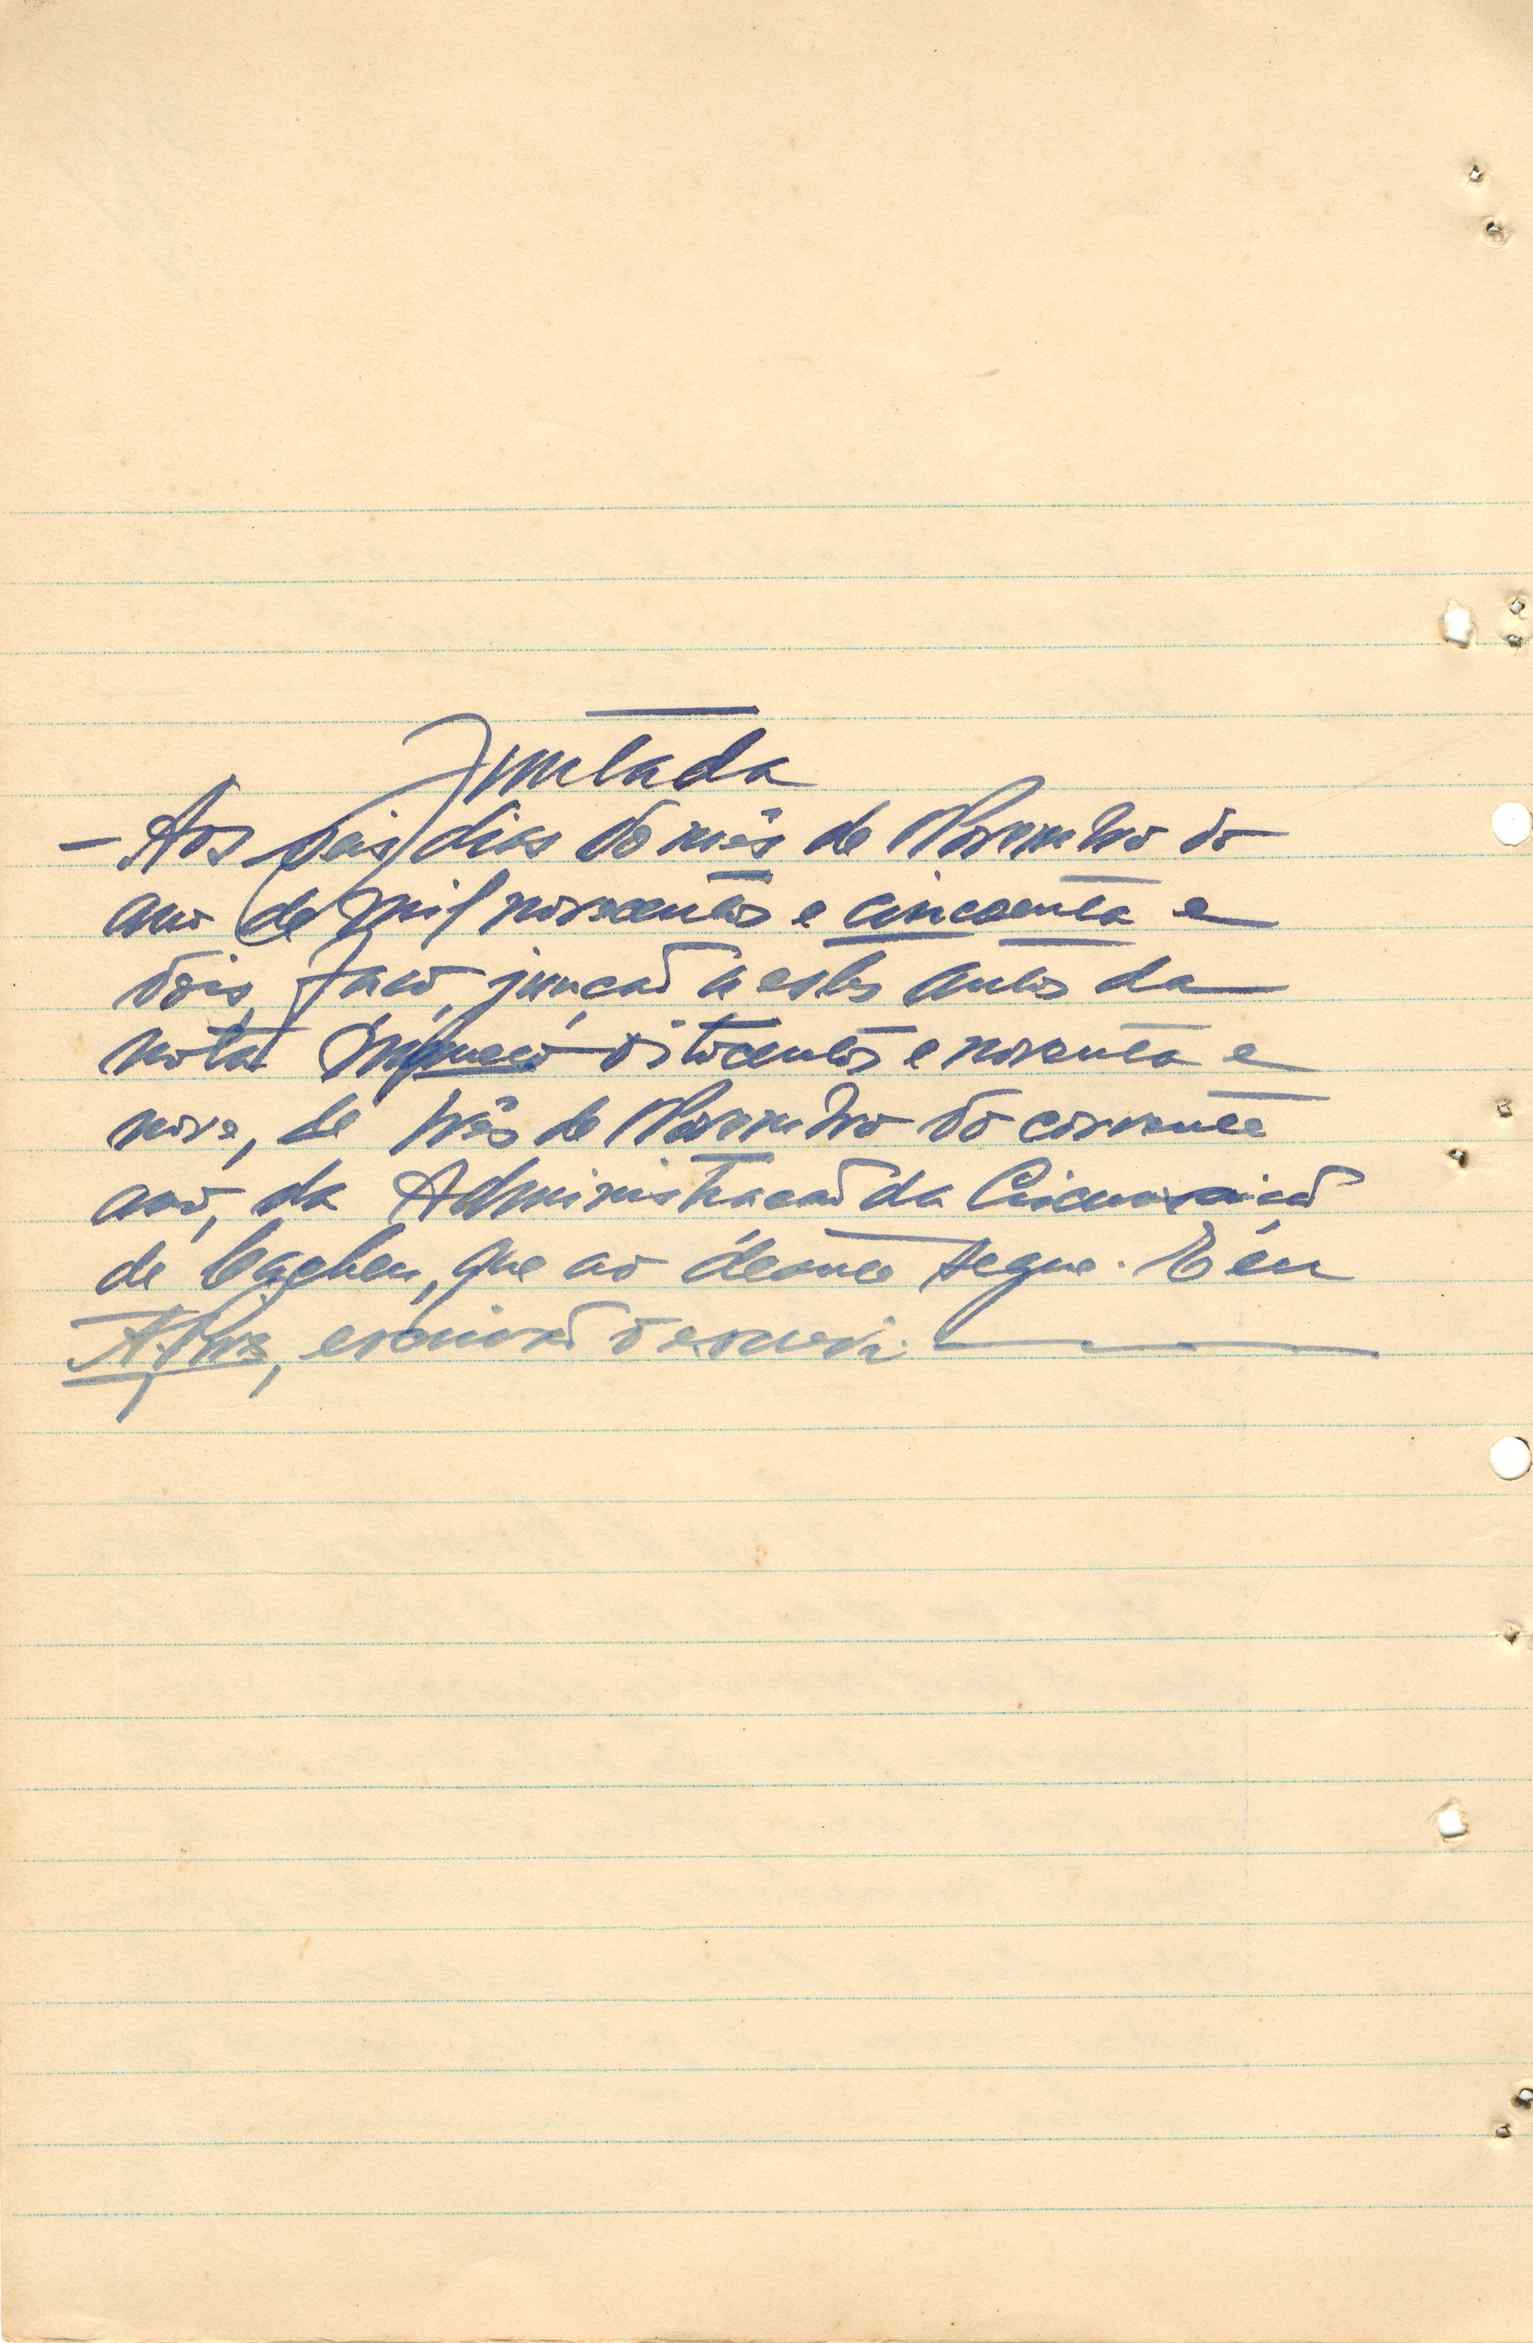 Juntada
- Aos seis dias do mês de Novembro do
ano de mil novecentos e cincoenta e
dois, faço junção a estes autos da
nota número oitocentos e noventa e
nove, de três de Novembro do corrente
ano, da Administração da Circunscrição
de Cacheu, que ao deante segue. E eu
escrivão o escrevi.